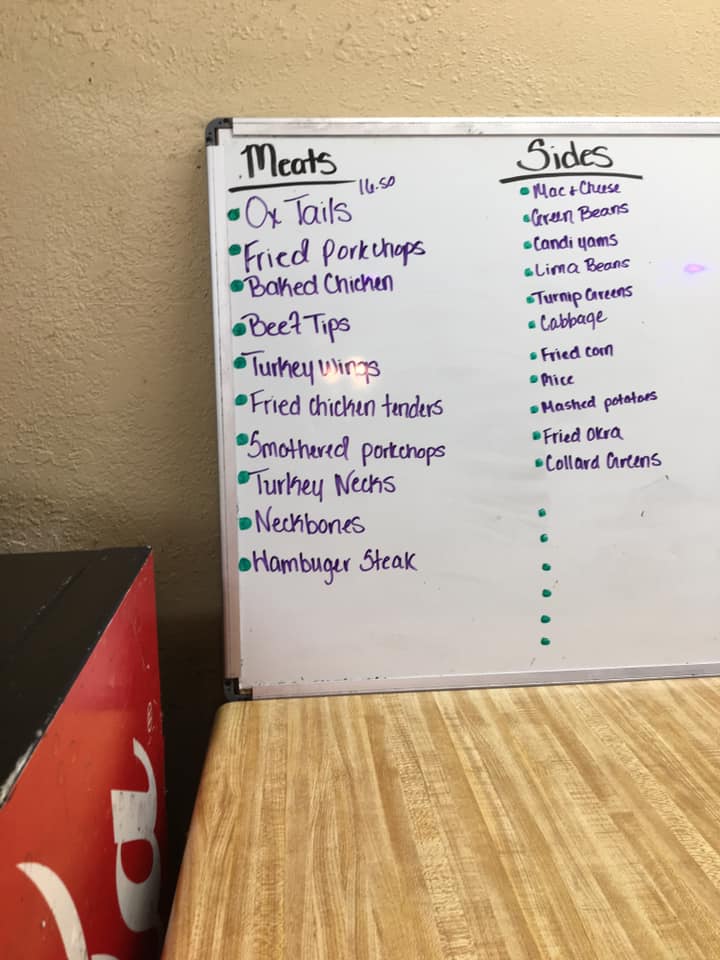 Meats
Ox Tails 16.50
Fried Porkchops
Baked Chicken
Beef Tips
Turkey Wings
Fried chicken tenders
Smothered porkchops
Turkey Necks
Neckbones
Hambuger Steak
Sides
Mac + Cheese
Green Beans
Candi yams
Lima Beans
Turnip Greens
Cabbage
Fried corn
Rice
Mashed potatoes
Fried Okra
Collard Greens